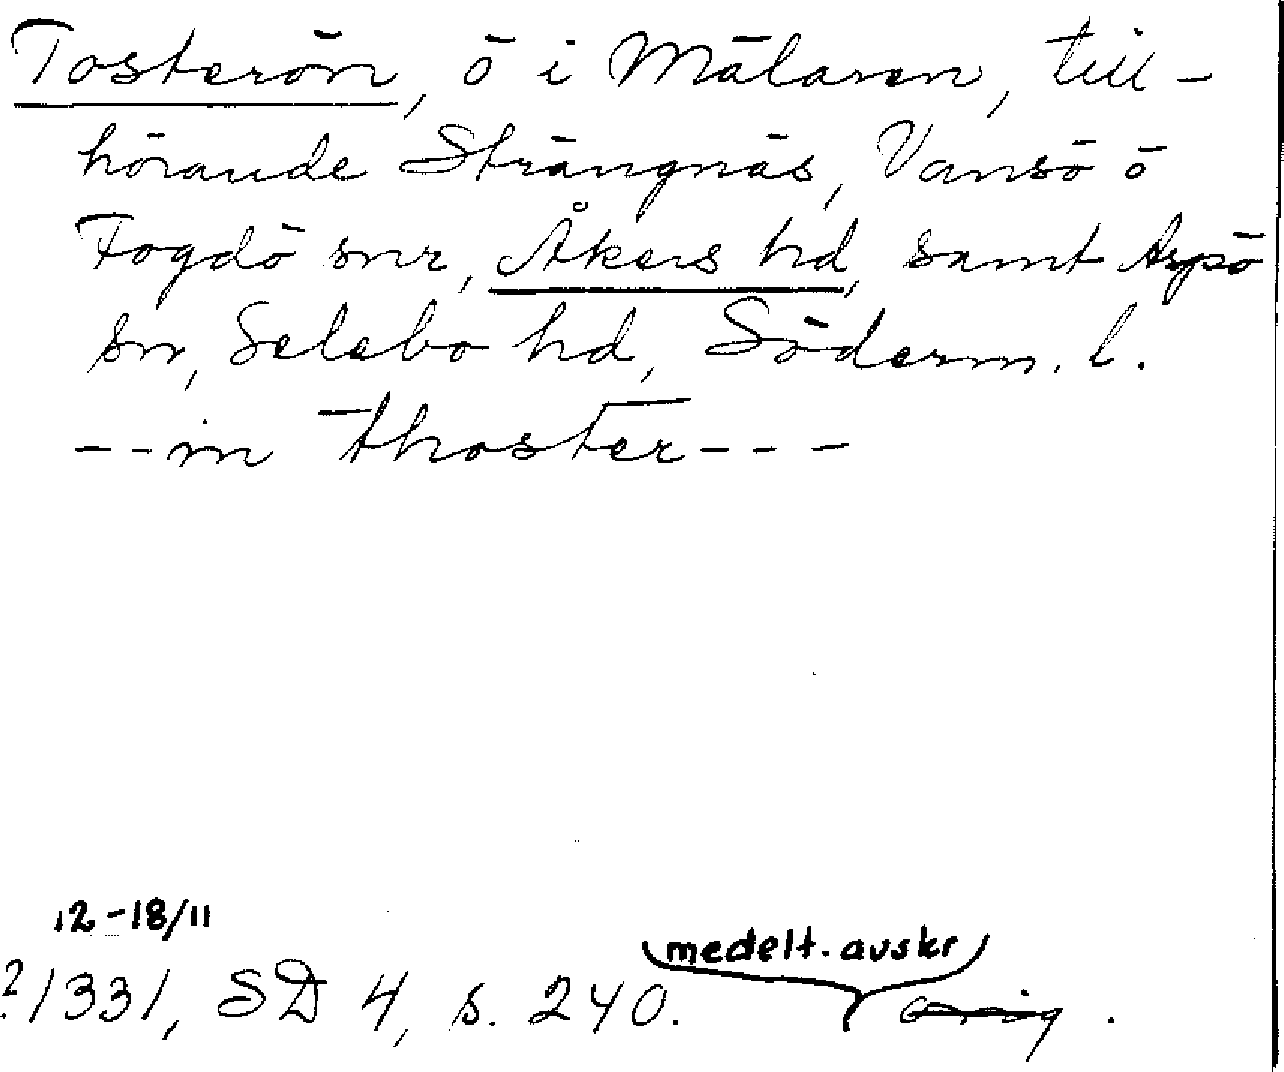 Tosterön, ö i Mälaren, till-
hörande Strängnäs, Vansö ö
Fogdö snr, Åkers hd, samt Aspö
sn, Selebo hd, Söderm. l.
--in Thoster---
12-18/11
medelt. avskr
?1331, SD 4, s. 240. orig.